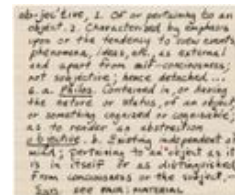 ob·jec'tive, 1. Of or pertaining to an
object. 2. Characterized by emphasis
upon or the tendency to view events,
phenomena, ideas, etc., as external
and apart from self-consciousness;
not subjective; hence detached...
6. a. Philos. Contained in, or having
the nature or status, of an object,
or something cognized or cognisable;
as to render an abstraction
objective. b. Existing independent of
mind; Pertaining to an object as it
is in itself or as distinguished
from consciousness or the subject,—
Syn. see FAIR: MATERIAL